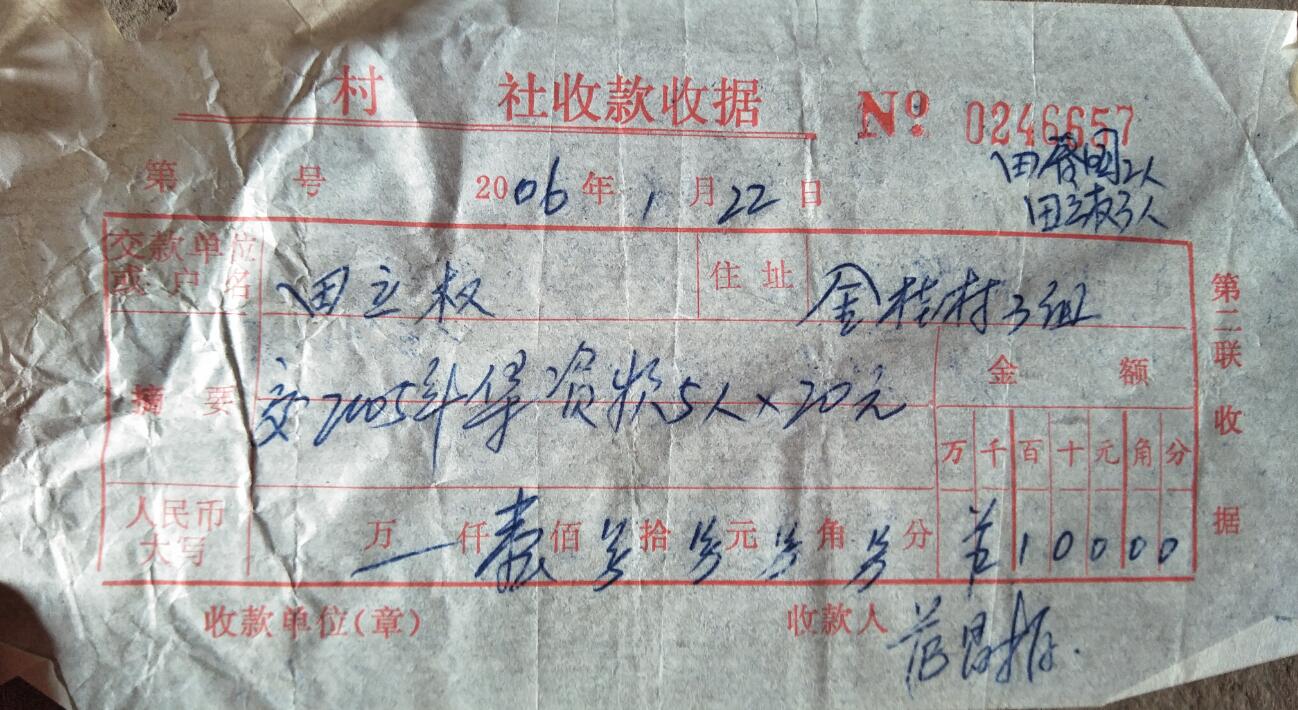 村 社收款收据 № 0246657
第 号 2006年1月22日
田春国2人
田立权3人
交款单位或户名 田立权 住址 金桔村3组
摘要 交2005年集资款5人×20元
金额
万千百十元角分
人民币大写 万一仟壹佰另拾另元另角另分 10000
收款单位(章) 收款人
第二联 收据